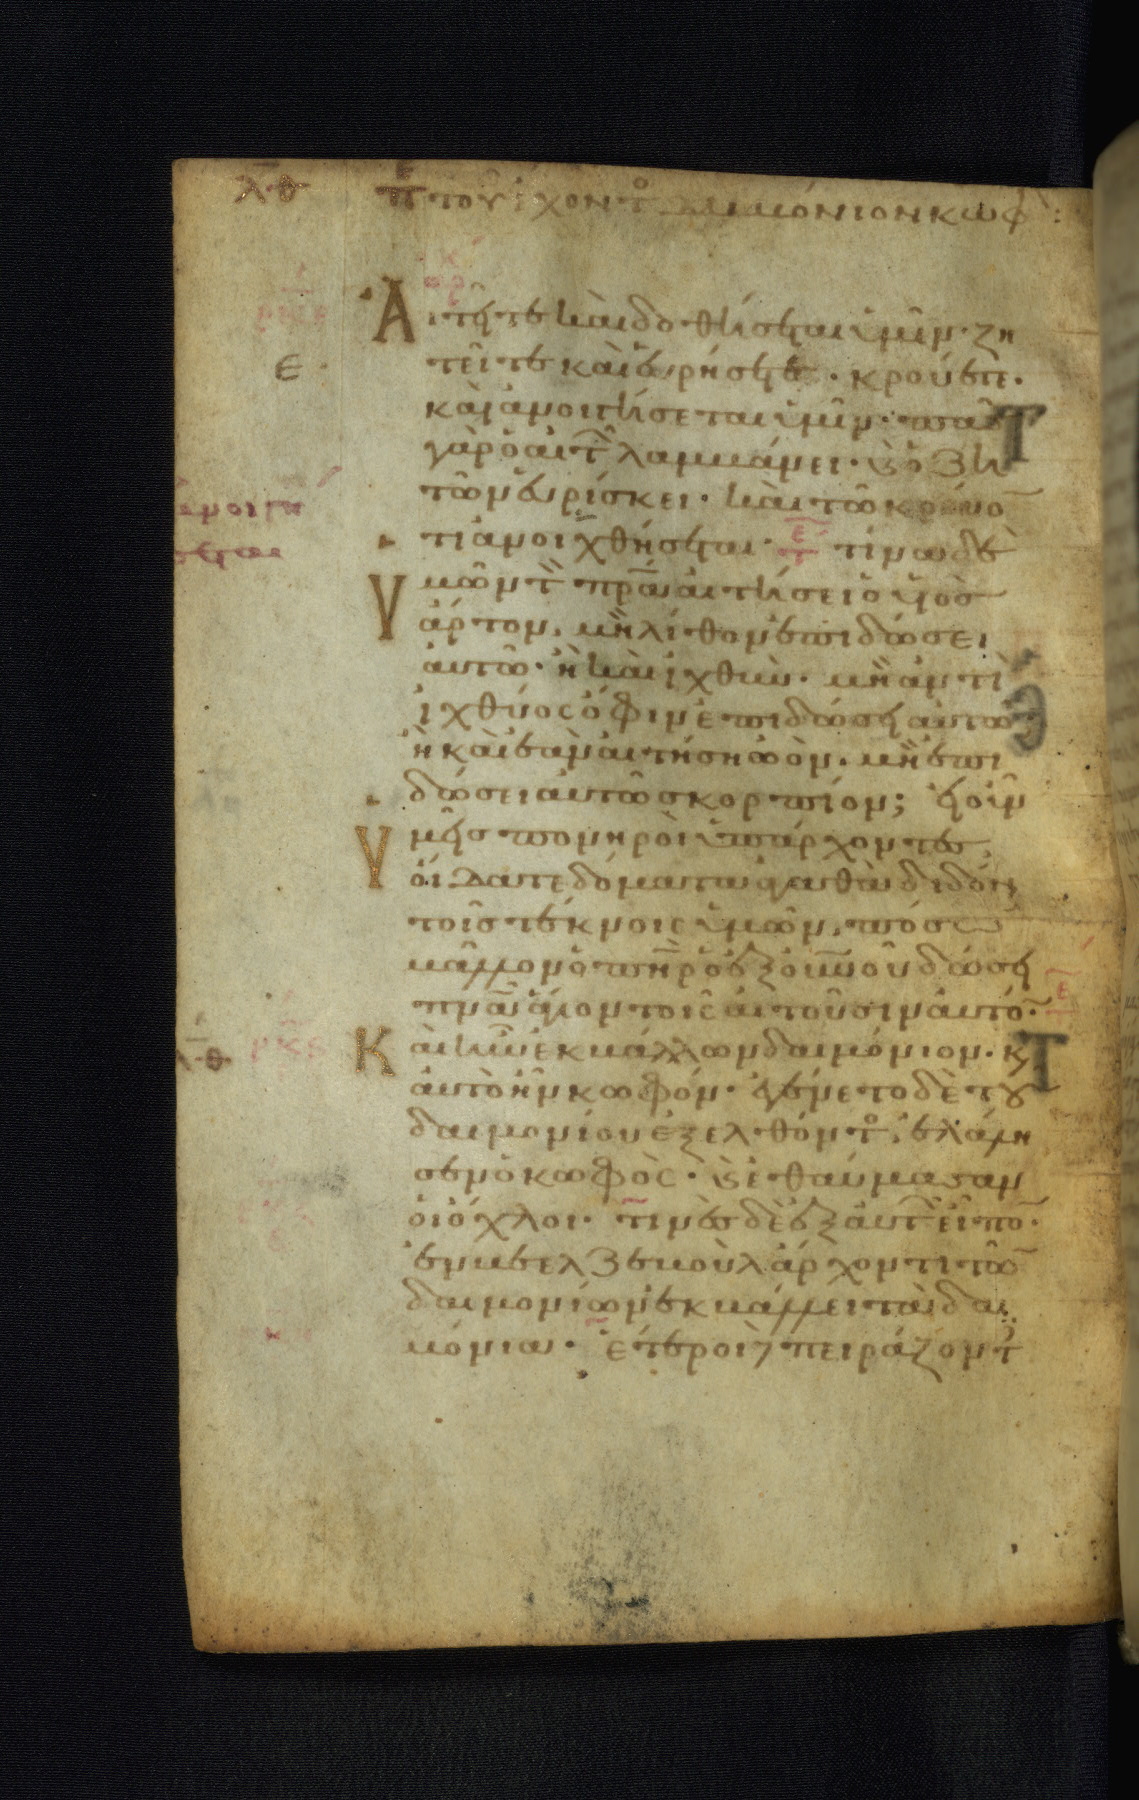 λθ π τοῦ ἔχοντ δαιμόνιον κωφ :
Αἰτεῖτε καὶ δοθήσεται ὑμῖν· ζη
ε
τεῖτε καὶ εὑρήσετε· κρούετε·
καὶ ἀνοιγήσεται ὑμῖν· πᾶς
γὰρ ὁ αἰτῶν λαμβάνει· καὶ ὁ ζη
τῶν εὑρίσκει· καὶ τῶ κρούο
τι ἀνοιχθήσεται· τίνα δὲ
ὑμῶν τὸν πρα αἰτήσει ὁ υἱὸς
ἄρτον, μὴ λίθον ἐπιδώσει
αὐτῶ· ἢ καὶ ἰχθὺν· μὴ ἀντὶ
ἰχθύος ὄφιν ἐπιδώσει αὐτῶ·
ἢ καὶ ἐὰν αἰτήση ὠὸν· μὴ ἐπι
δώσει αὐτῶ σκορπίον; εἰ οὖν
ὑμεῖς πονηροὶ ὑπάρχοντες,
οἴδατε δόματα ἀγαθὰ διδόναι
τοῖς τέκνοις ὑμῶν, πόσω
μᾶλλον ὁ πηρ ὁ ἐξ οὐνου δώσει
πνα ἅγιον τοῖς αἰτοῦσιν αὐτό·
λθ ρκε Καὶ ἦν ἐκβάλλων δαιμόνιον· κ
αὐτὸ ἦν κωφόν· ἐγένετο δὲ τοῦ
δαιμονίου ἐξελθόντ, ἐλάλη
σεν ὁ κωφὸς· καὶ ἐθαύμασαν
οἱ ὄχλοι· τινὲς δὲ ἐξ αὐτῶν εἶπο·
ἐν βεελζεβοὺλ ἄρχοντι τῶ
δαιμονίων ἐκβάλλει τὰ δαι
μόνια· ἕτεροι πειράζοντ